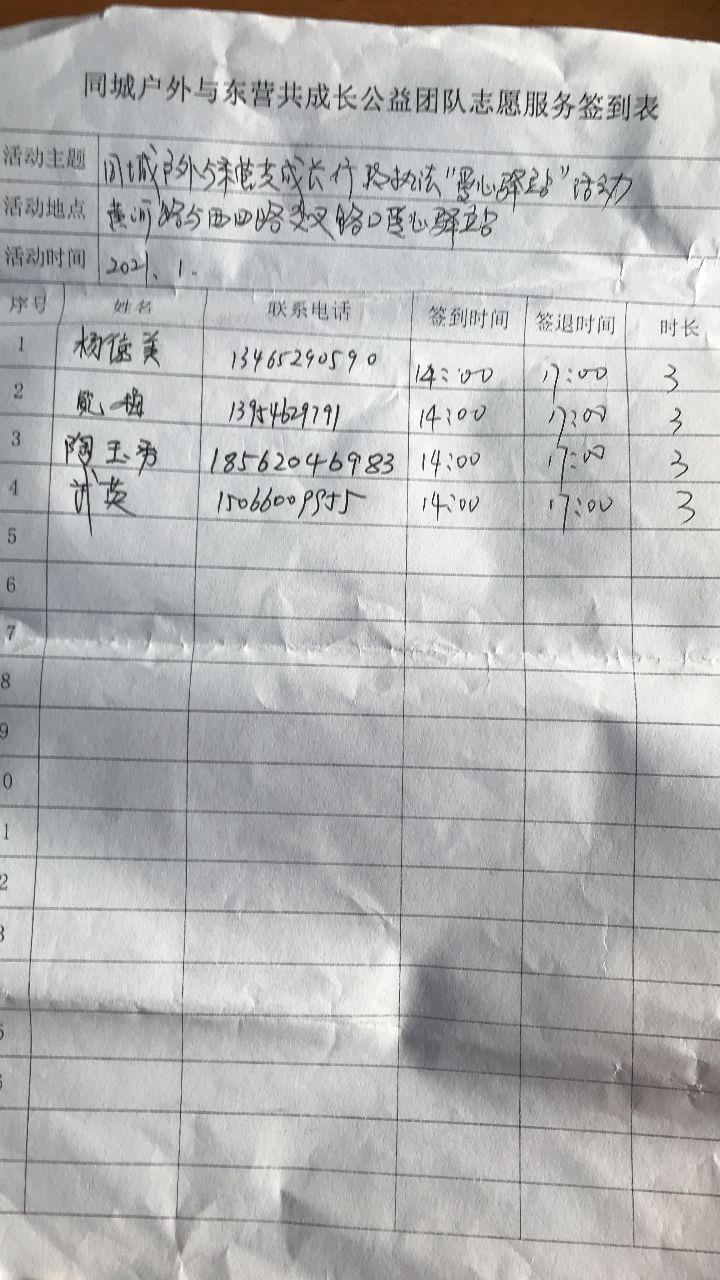 同城户外与东营共成长公益团队志愿服务签到表
活动主题 同城户外与东营共成长行 执法"爱心驿站"活动
活动地点 黄河路与西四路交叉路口爱心驿站
活动时间 2021.1.
序号 姓名 联系电话 签到时间 签退时间 时长
1 杨信美 13465290590 14:00 17:00 3
2 梅 13954629791 14:00 17:00 3
3 陶玉秀 18562046983 14:00 17:00 3
4 武英 15066009955 14:00 17:00 3
5
6
7
8
9
0
1
2
3
5